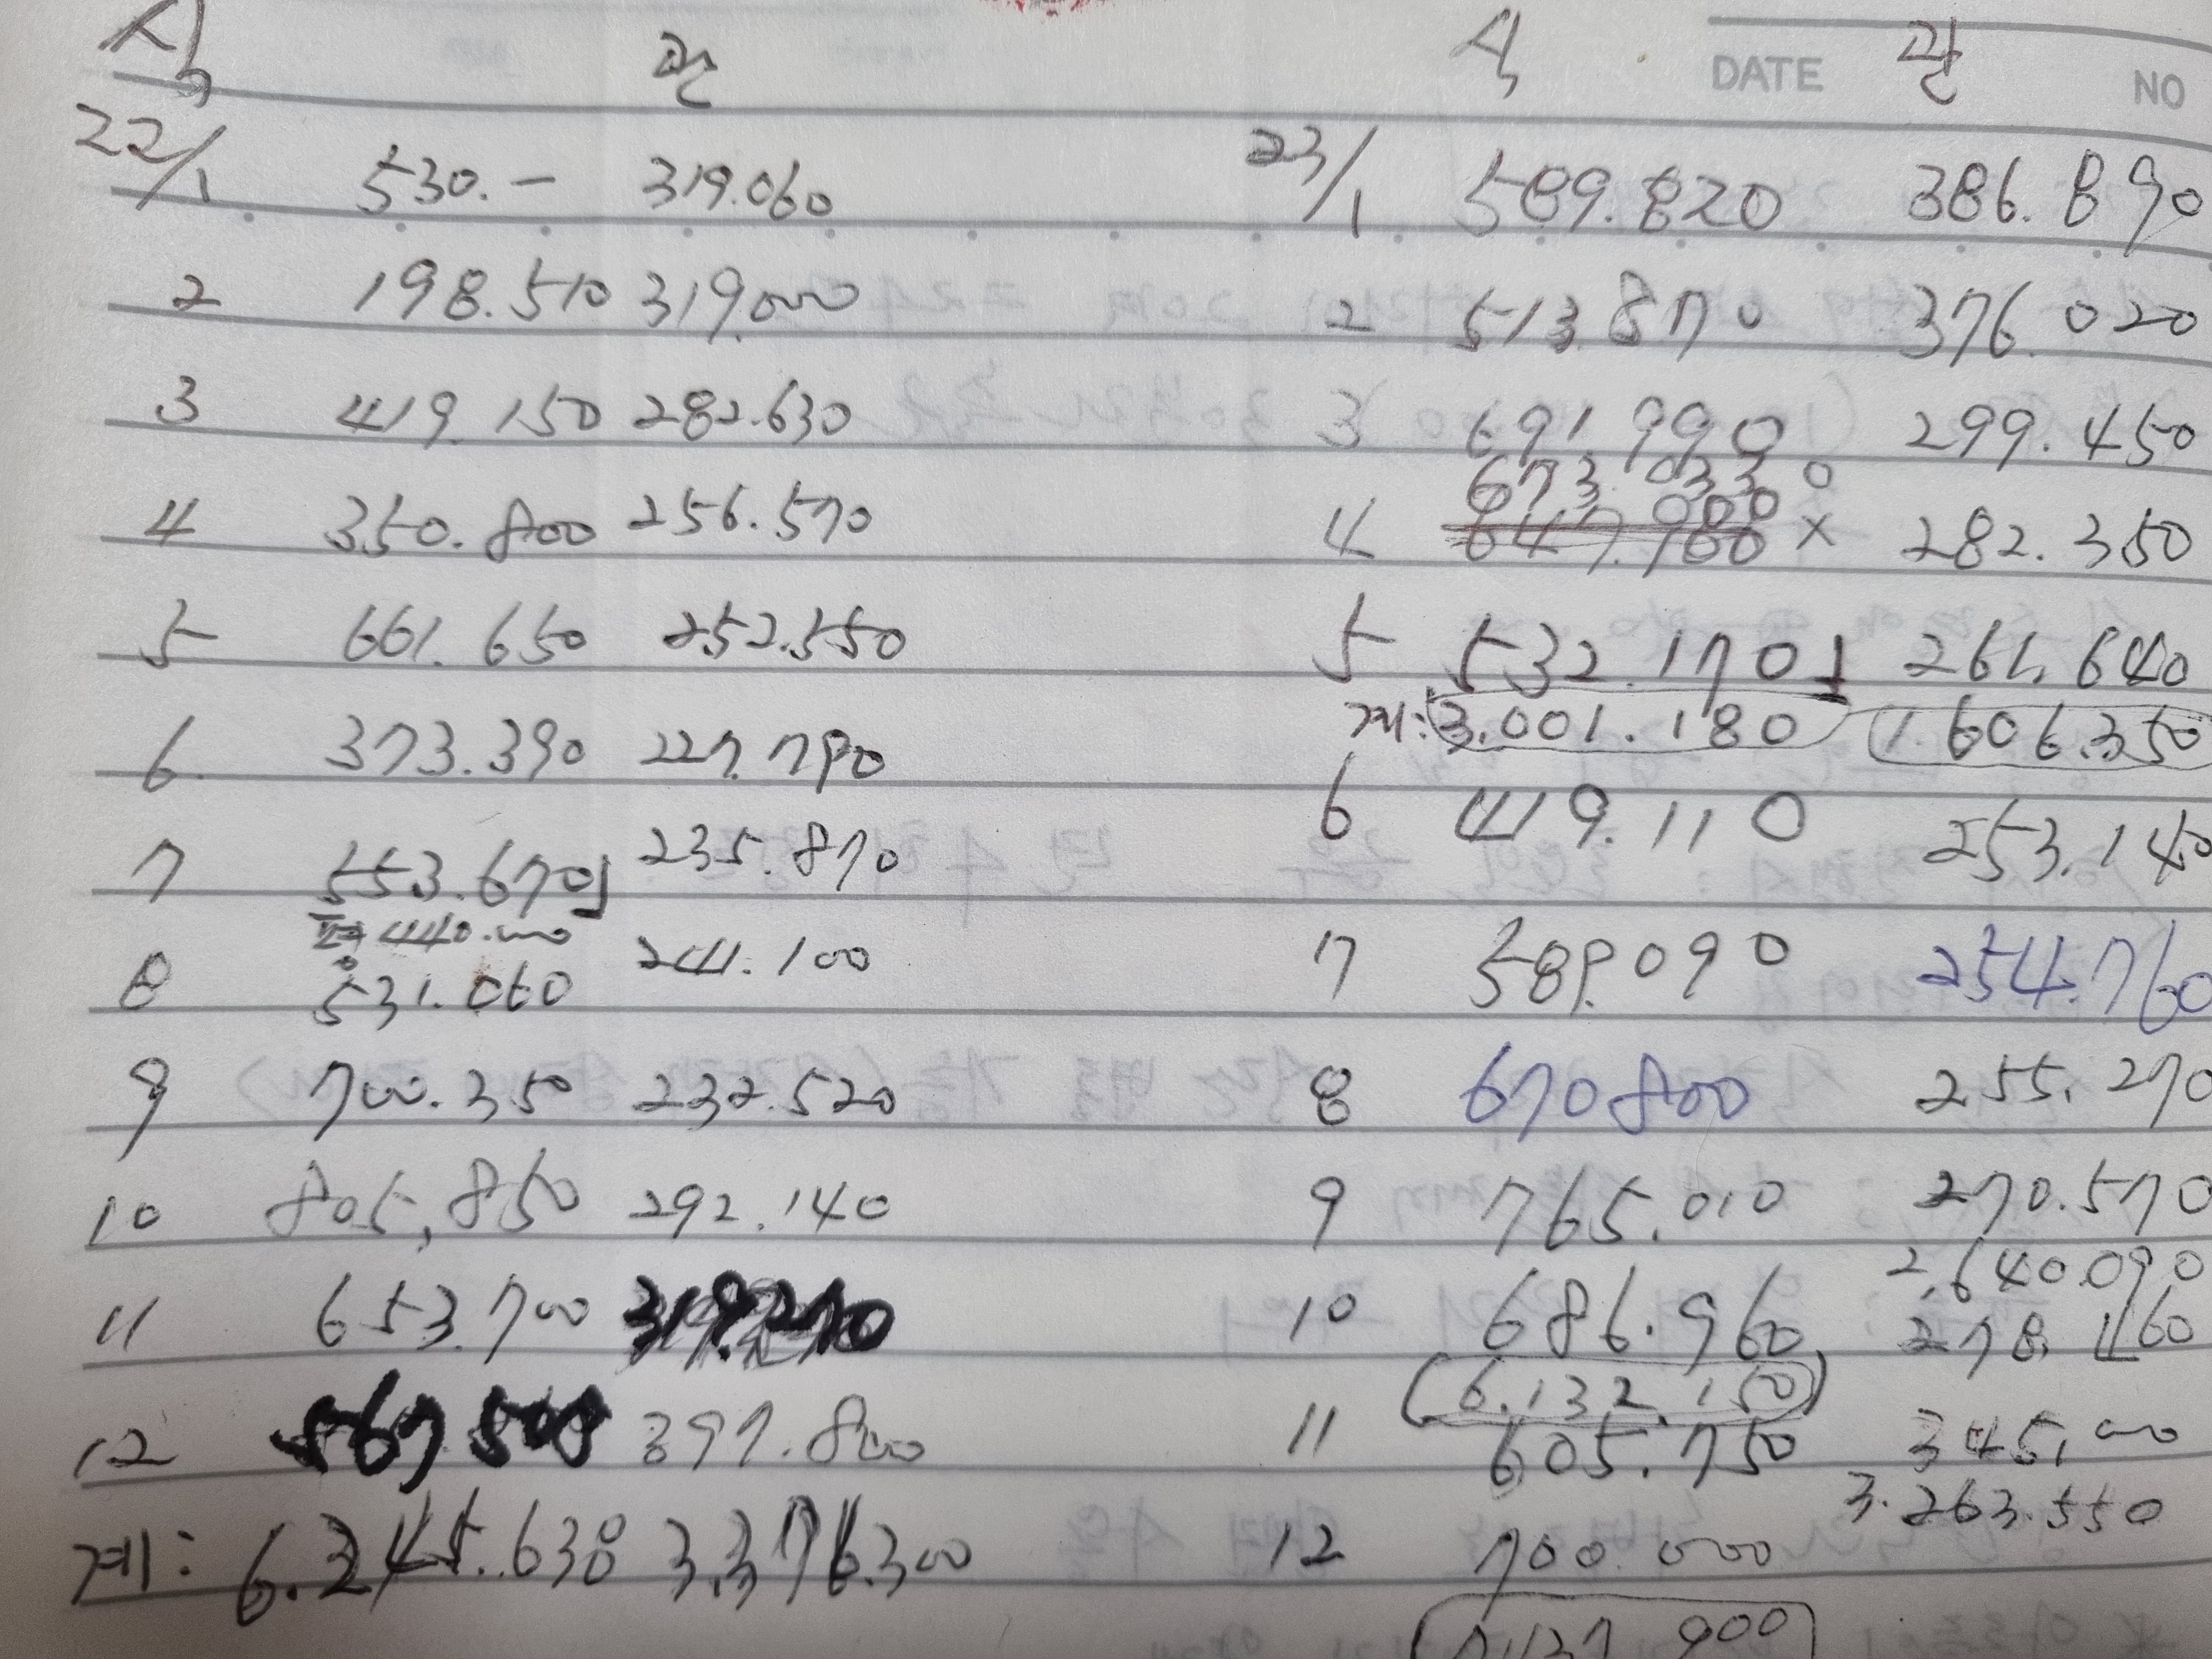 식 관 식 DATE 관 NO
22/1 530.- 319.060 23/1 589.820 386.890
2 198.510 319.000 2 513.870 376.020
3 419.150 282.630 3 691.990 299.450
673.0330
4 350.800 256.570 4 x 282.350
5 661.650 252.550 5 532.170 261.640
계: 3.001.180 1.606.350
6 373.390 227.790 6 419.110 253.140
7 553.670 235.870
440.000
8 531.060 241.100 7 589.090 254.760
9 700.350 232.520 8 670800 255.270
10 805,850 292.140 9 765.010 270.570
2.640.090
11 653.700 319.270 10 686.960 278.460
(6.132.150)
12 567 500 397.800 11 605.750 345,000
3.263.550
계: 6.345.630 3.376.300 12 700.000
7.137.900